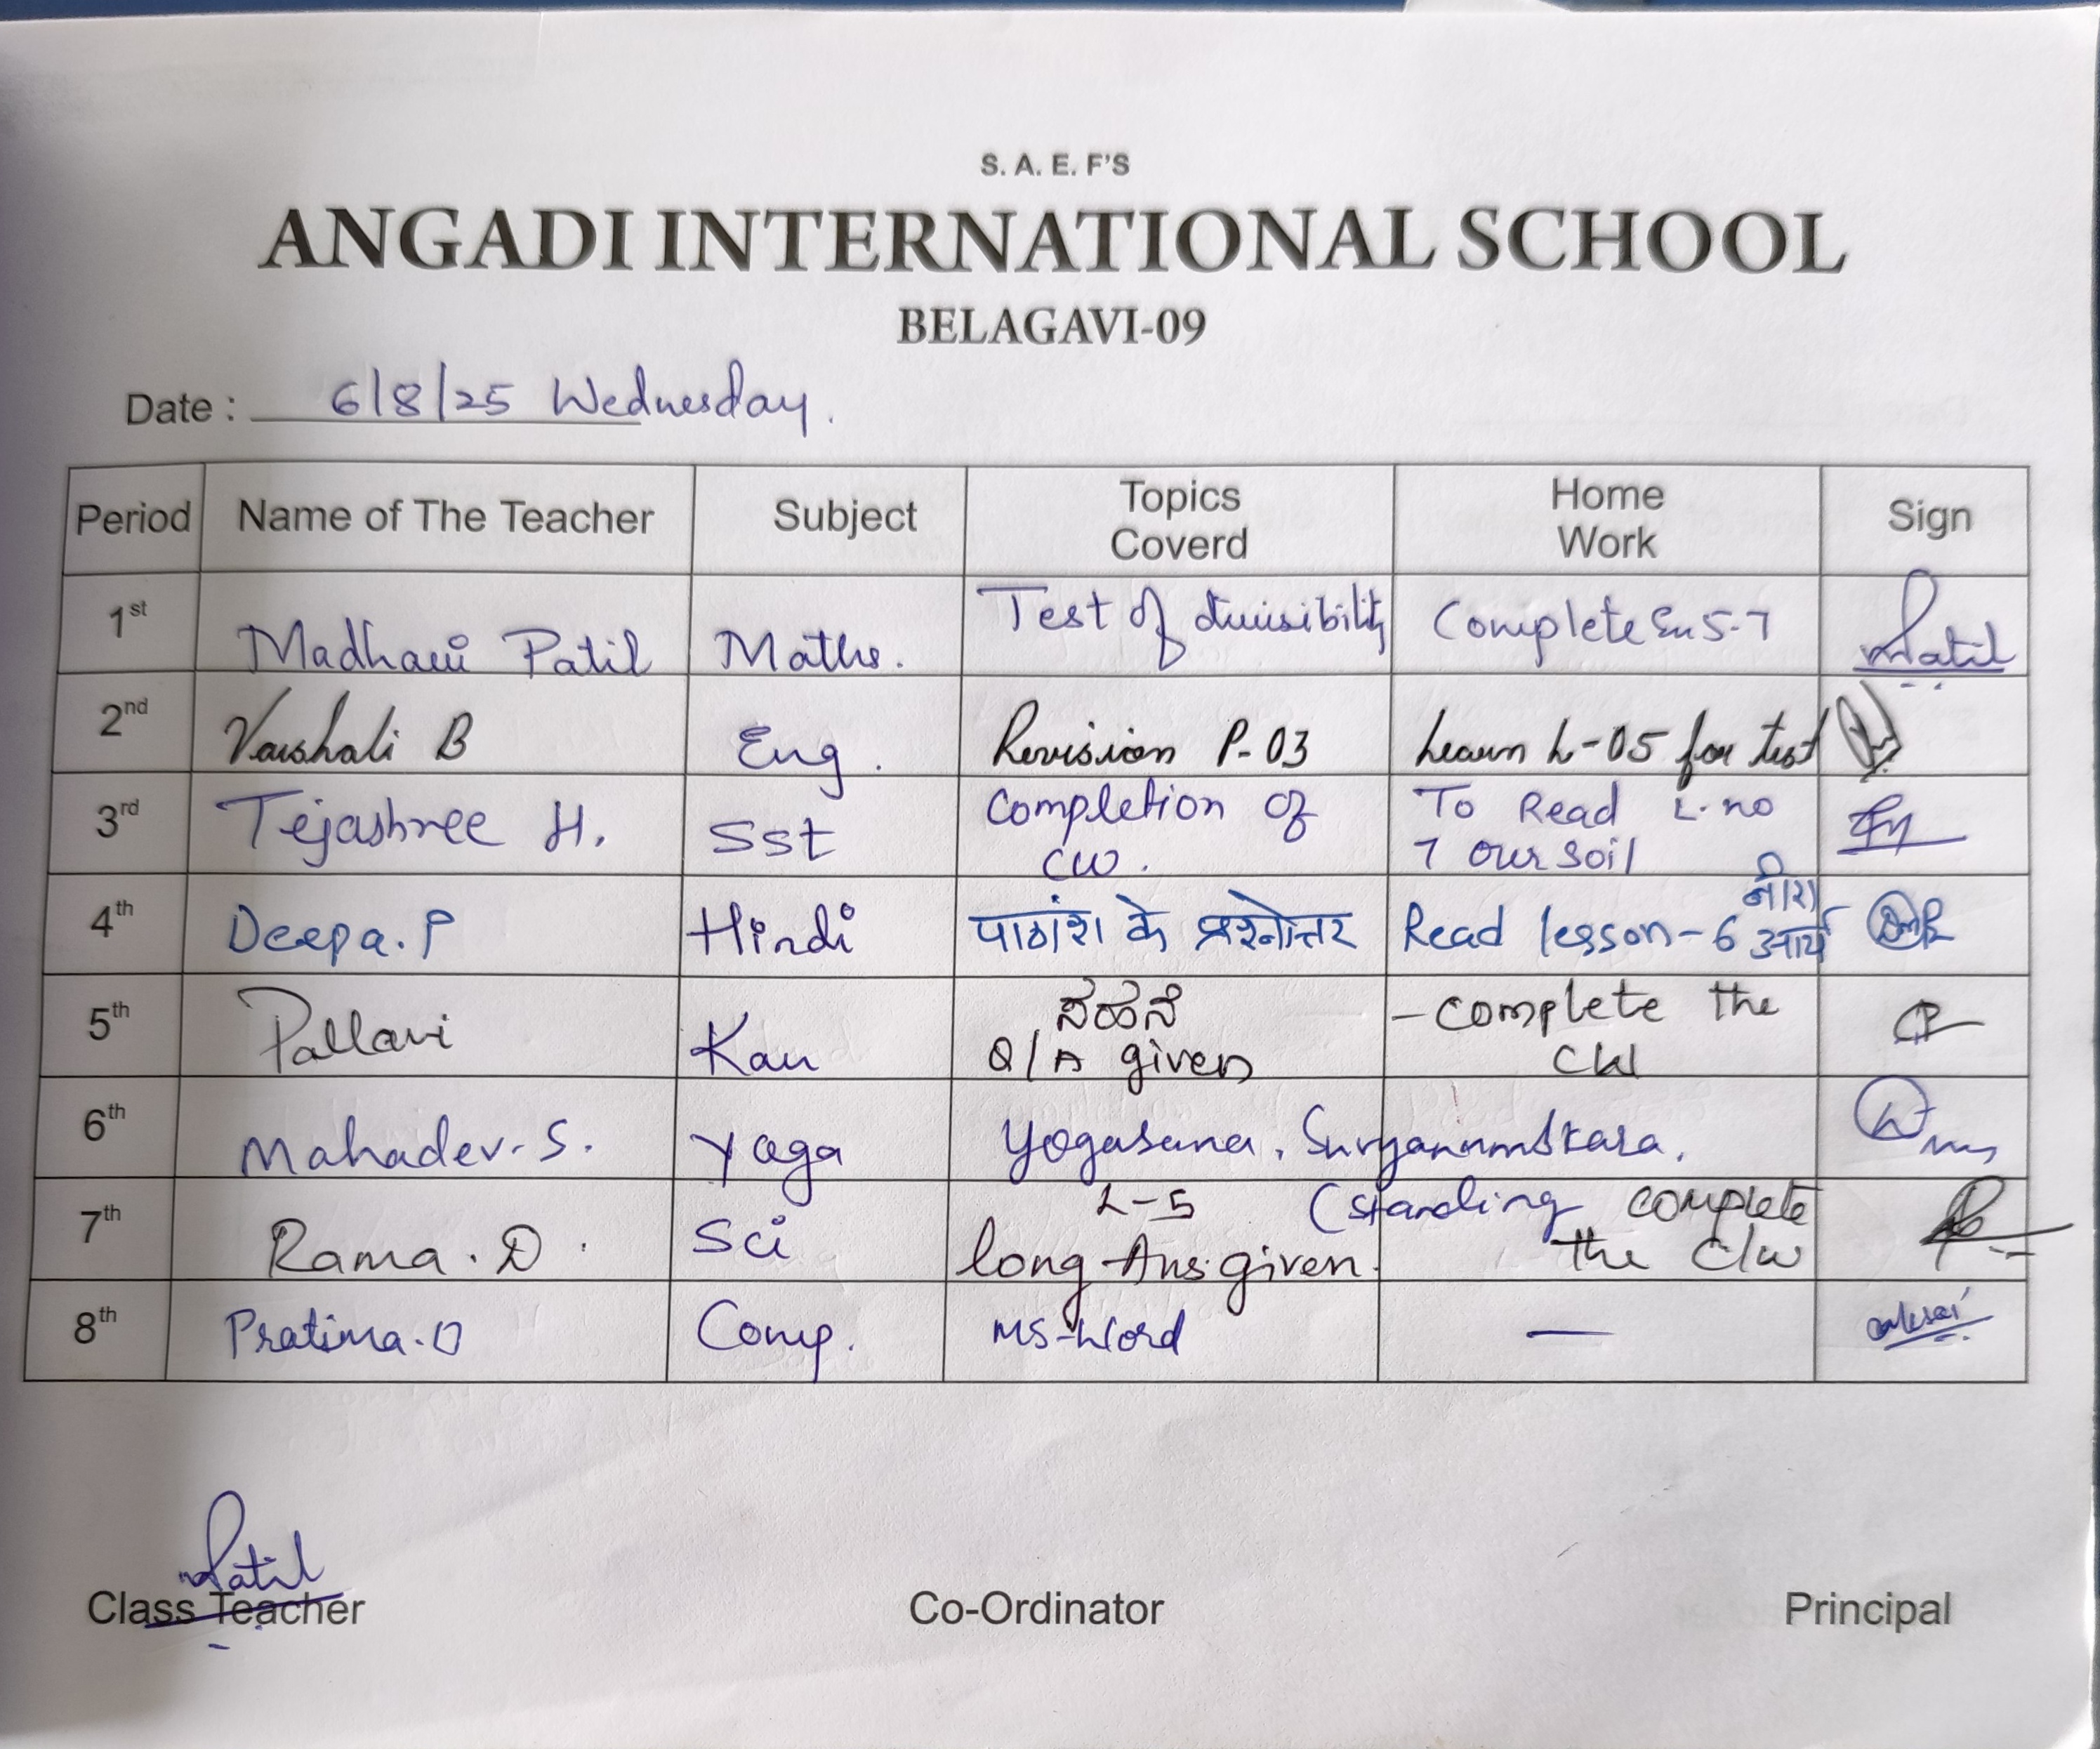 S. A. E. F'S
ANGADI INTERNATIONAL SCHOOL
BELAGAVI-09
Date : 6/8/25 Wednesday.
Period Name of The Teacher Subject Topics Coverd Home Work Sign
1st Madhavi Patil Maths. Test of divisibility Complete Ex 5.7 Patil
2nd Vaishali B Eng. Revision P-03 Learn L-05 for test
3rd Tejashree H. Sst Completion of CW. To Read L.no 7 our soil
4th Deepa.P Hindi पाठांश के प्रश्नोत्तर Read lesson-6 नीरा आर्य
5th Pallavi Kan ಸಹನೆ Q/A given - complete the CW
6th Mahadev.S. Yoga Yogasana, Suryanamskara. (standing
7th Rama.D. Sci L-5 long Ans. given. complete the C/W
8th Pratima.D Comp. MS-Word —
Patil
Class Teacher Co-Ordinator Principal